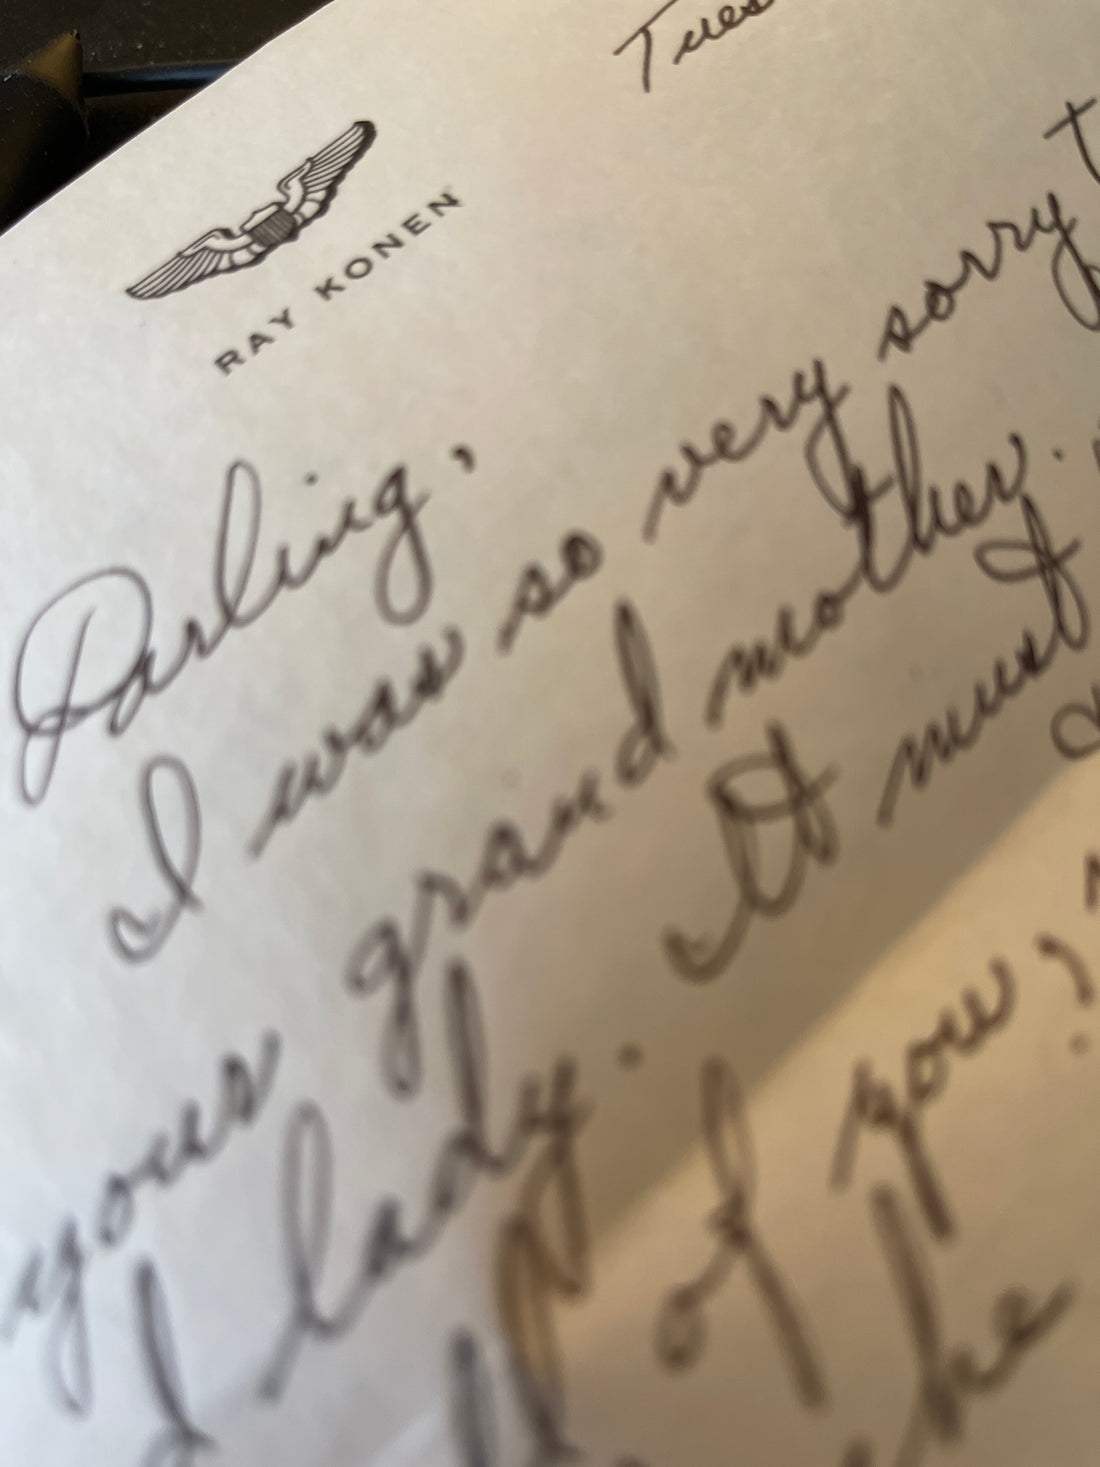 Tues
RAY KONEN
Darling,
I was so very sorry
your grand mother.
lady. It must
of you;
he